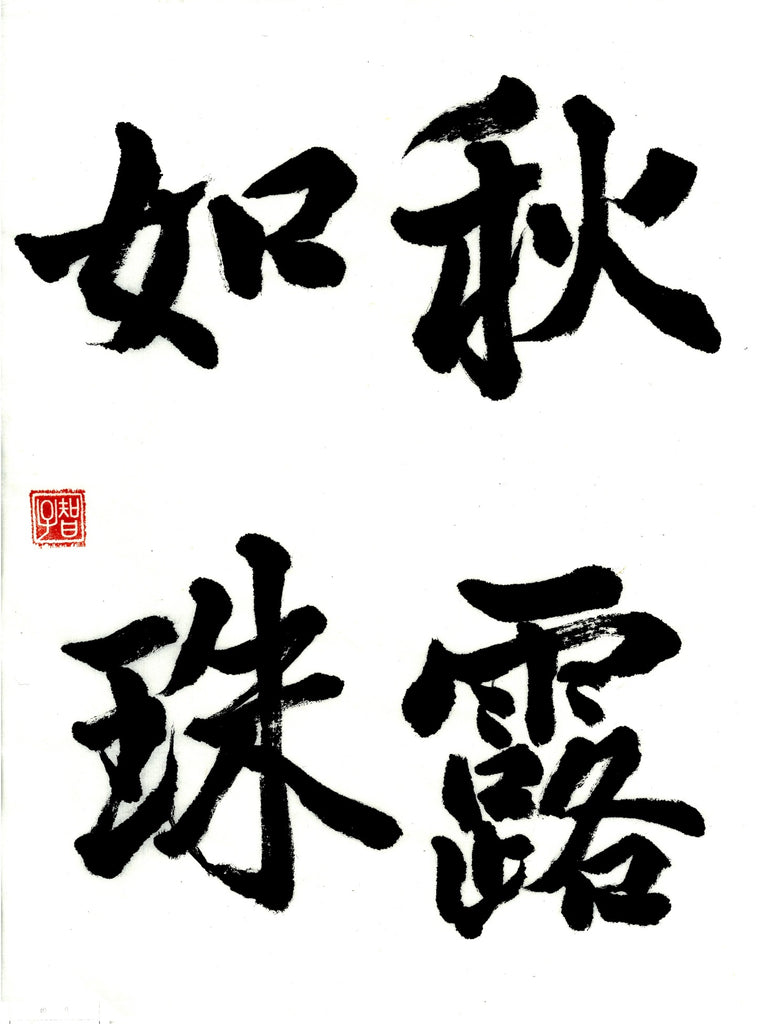 秋露
如珠
智子